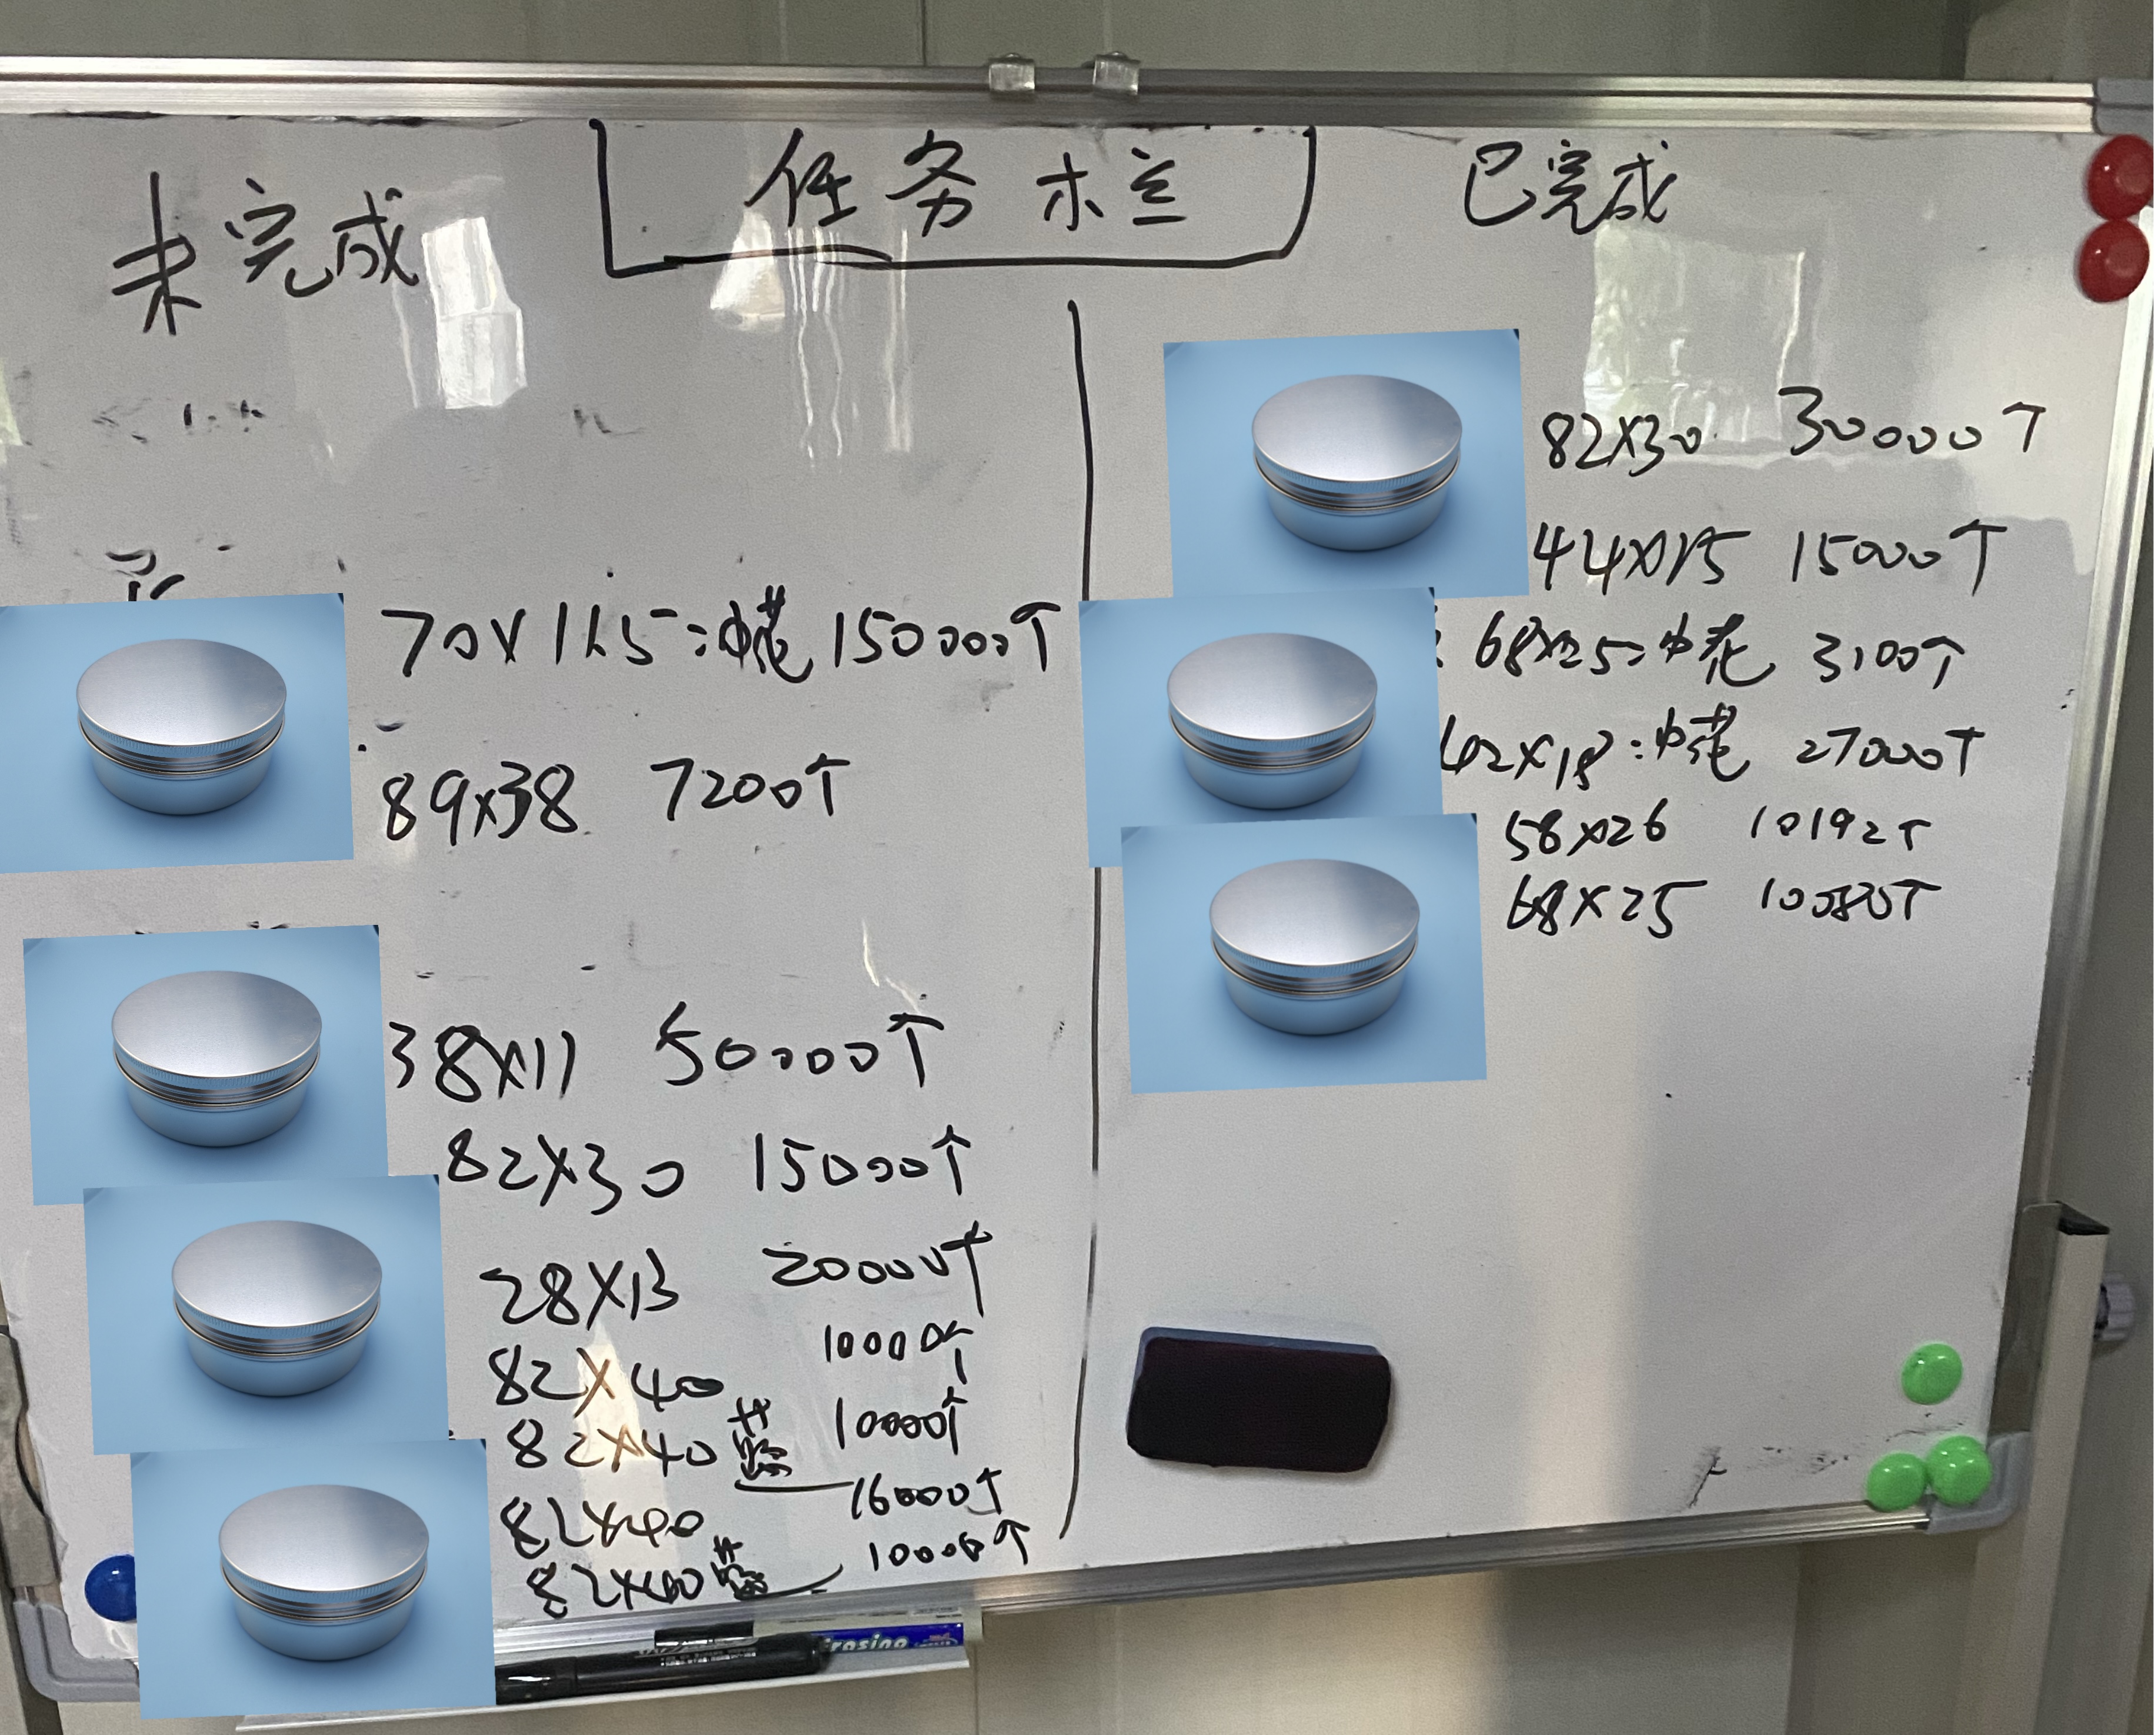 任务栏
未完成
70X11.5:冲花 150000个
89x38 7200个
38X11 50000个
82X30 15000个
28X13 20000个
82X40 10000个
82X40 10000个
82X40 16000个
82X40 10000个
已完成
82X30 30000个
44X15 15000个
68X25:冲花 3100个
42X18:冲花 27000个
58X26 10192个
68X25 10080个